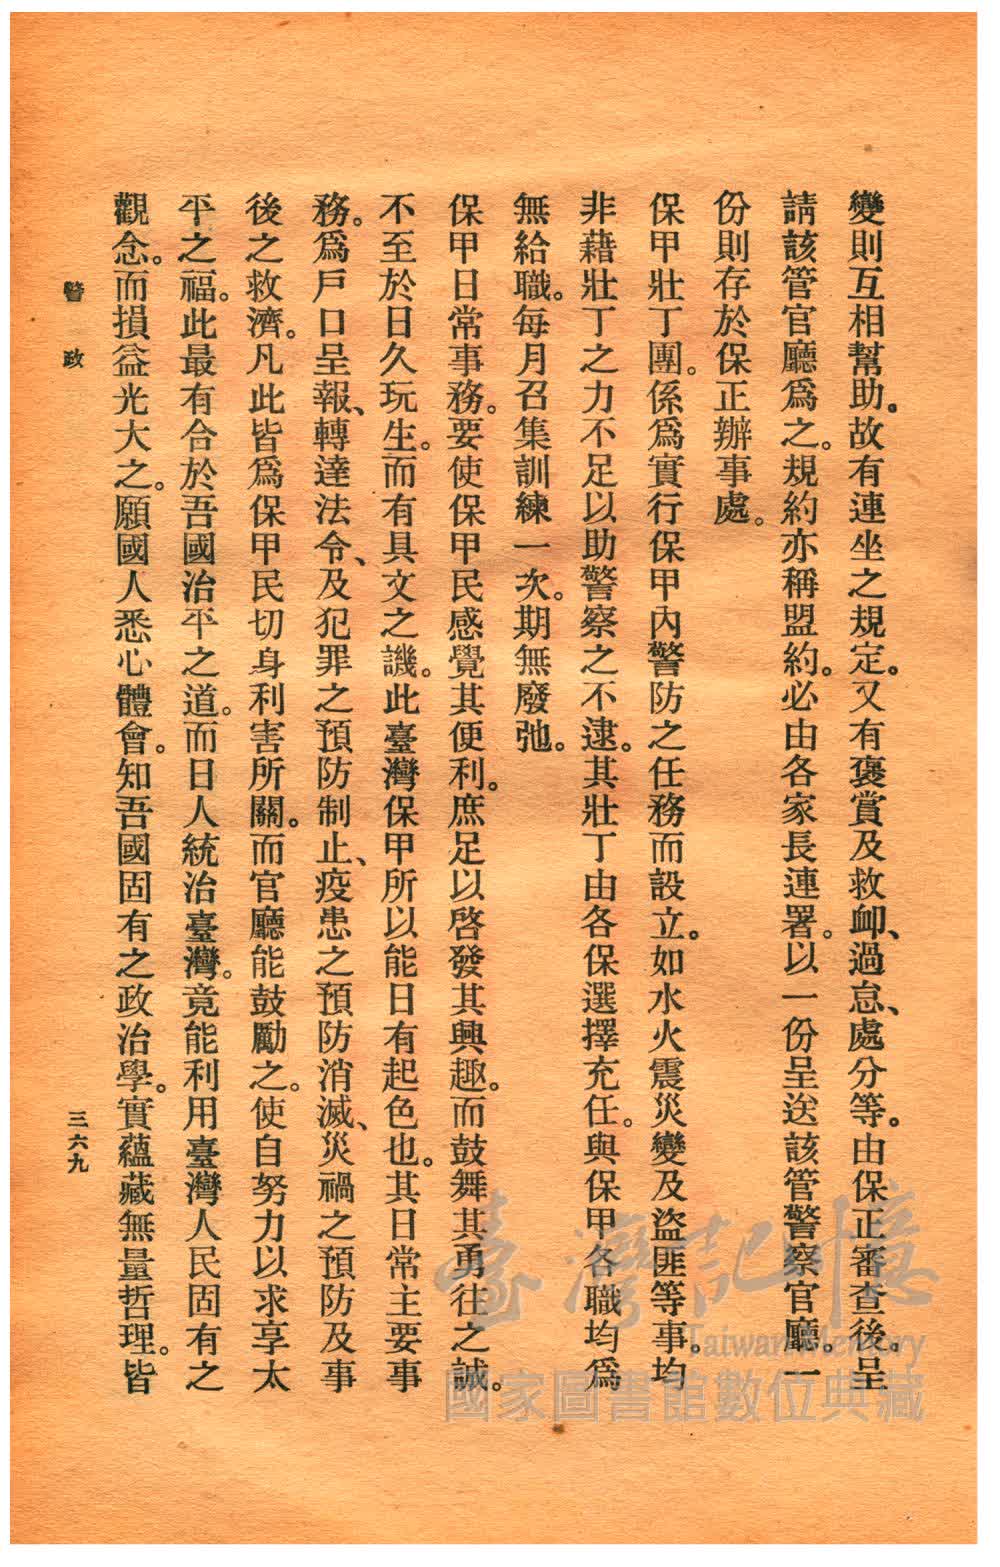 變則互相幫助。故有連坐之規定。又有褒賞及救卹、過怠、處分等。由保正審查後。呈
請該管官廳爲之。規約亦稱盟約。必由各家長連署。以一份呈送該管警察官廳。一
份則存於保正辦事處。
保甲壯丁團。係爲實行保甲內警防之任務而設立。如水火震災變及盜匪等事。均
非藉壯丁之力不足以助警察之不逮。其壯丁由各保選擇充任。與保甲各職均爲
無給職。每月召集訓練一次。期無廢弛。
保甲日常事務。要使保甲民感覺其便利。庶足以啓發其興趣。而鼓舞其勇往之誠。
不至於日久玩生。而有具文之譏。此臺灣保甲所以能日有起色也。其日常主要事
務。爲戶口呈報、轉達法令、及犯罪之預防制止、疫患之預防消滅、災禍之預防及事
後之救濟。凡此皆爲保甲民切身利害所關。而官廳能鼓勵之。使自努力以求享太
平之福。此最有合於吾國治平之道。而日人統治臺灣。竟能利用臺灣人民固有之
觀念。而損益光大之。願國人悉心體會。知吾國固有之政治學。實蘊藏無量哲理。皆
警政
三六九
臺灣記憶
Taiwan Memory
國家圖書館數位典藏